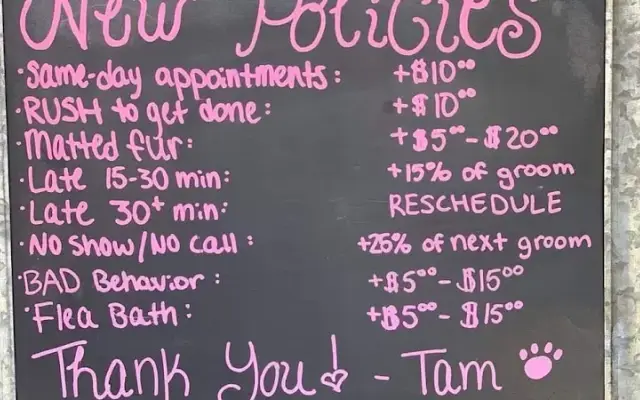 New Policies
·Same-day appointments: +$10⁰⁰
·RUSH to get done: +$10⁰⁰
·Matted fur: +$5⁰⁰-$20⁰⁰
·Late 15-30 min: +15% of groom
·Late 30+ min: RESCHEDULE
·No show/No call: +25% of next groom
·BAD Behavior: +$5⁰⁰-$15⁰⁰
·Flea Bath: +$5⁰⁰-$15⁰⁰
Thank You! - Tam